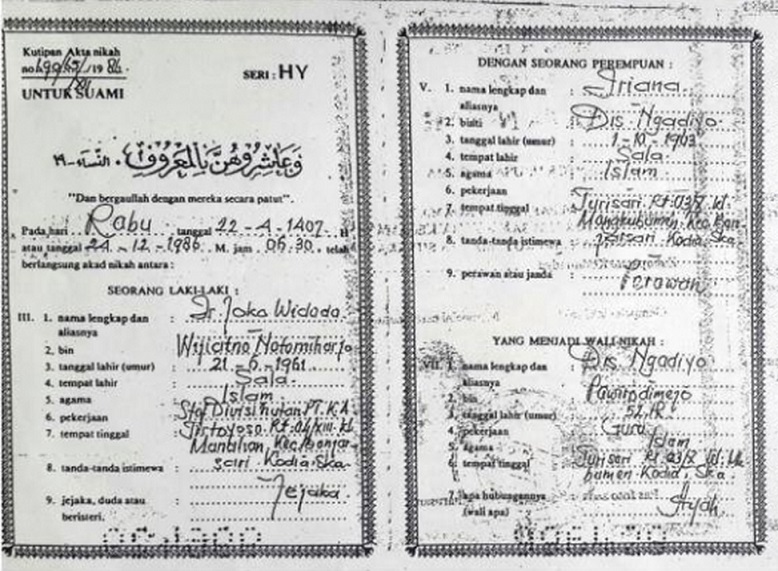 Kutipan Akta nikah
no 490/65/XII/19 86
SERI : HY
UNTUK SUAMI
وَعَاشِرُوهُنَّ بِالْمَعْرُوفِ . النساء - ١٩
"Dan bergaullah dengan mereka secara patut".
Pada hari Rabu tanggal 22-4-1407 H
atau tanggal 24-12-1986 M. jam 05.30 telah
berlangsung akad nikah antara :
SEORANG LAKI-LAKI :
III. 1. nama lengkap dan : Ir. Joko Widodo
aliasnya
2. bin Wijiatno Notomiharjo
3. tanggal lahir (umur) : 21-6-1961
4. tempat lahir : Sala
5. agama : Islam
6. pekerjaan : Staf Divisi hutan PT. K.A
7. tempat tinggal : Tirtoyoso Rt.04/XIII. kl.
Manahan Kec. Banjar-
8. tanda-tanda istimewa : sari Kodia Ska
9. jejaka, duda atau : Jejaka
beristeri.
DENGAN SEORANG PEREMPUAN :
V. 1. nama lengkap dan : Iriana
aliasnya
2. binti : Drs. Ngadiyo
3. tanggal lahir (umur) : 1-10-1963
4. tempat lahir : Sala
5. agama : Islam
6. pekerjaan :
7. tempat tinggal : Turisari Rt.03/X kl.
Mangkubumen Kec. Ban-
8. tanda-tanda istimewa : jarsari Kodia Ska
9. perawan atau janda : Perawan
YANG MENJADI WALI NIKAH :
VII. 1. nama lengkap dan : Drs Ngadiyo
aliasnya
2. bin
3. tanggal lahir (umur) : 52 th
4. pekerjaan : Guru
5. agama : Islam
6. tempat tinggal : Turisari Rt 03/X kl.
bumen Kodia Ska
7. apa hubungannya : Ayah
(wali apa)